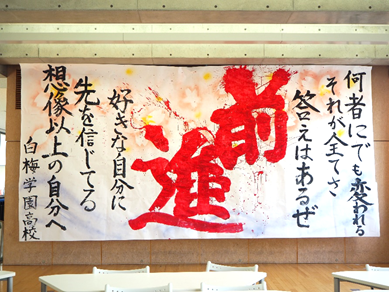 何者にでも変われる
それが人生てさ
答えはあるぜ
前進
好きな自分に
先を信じてる
想像以上の自分へ
白梅学園高校